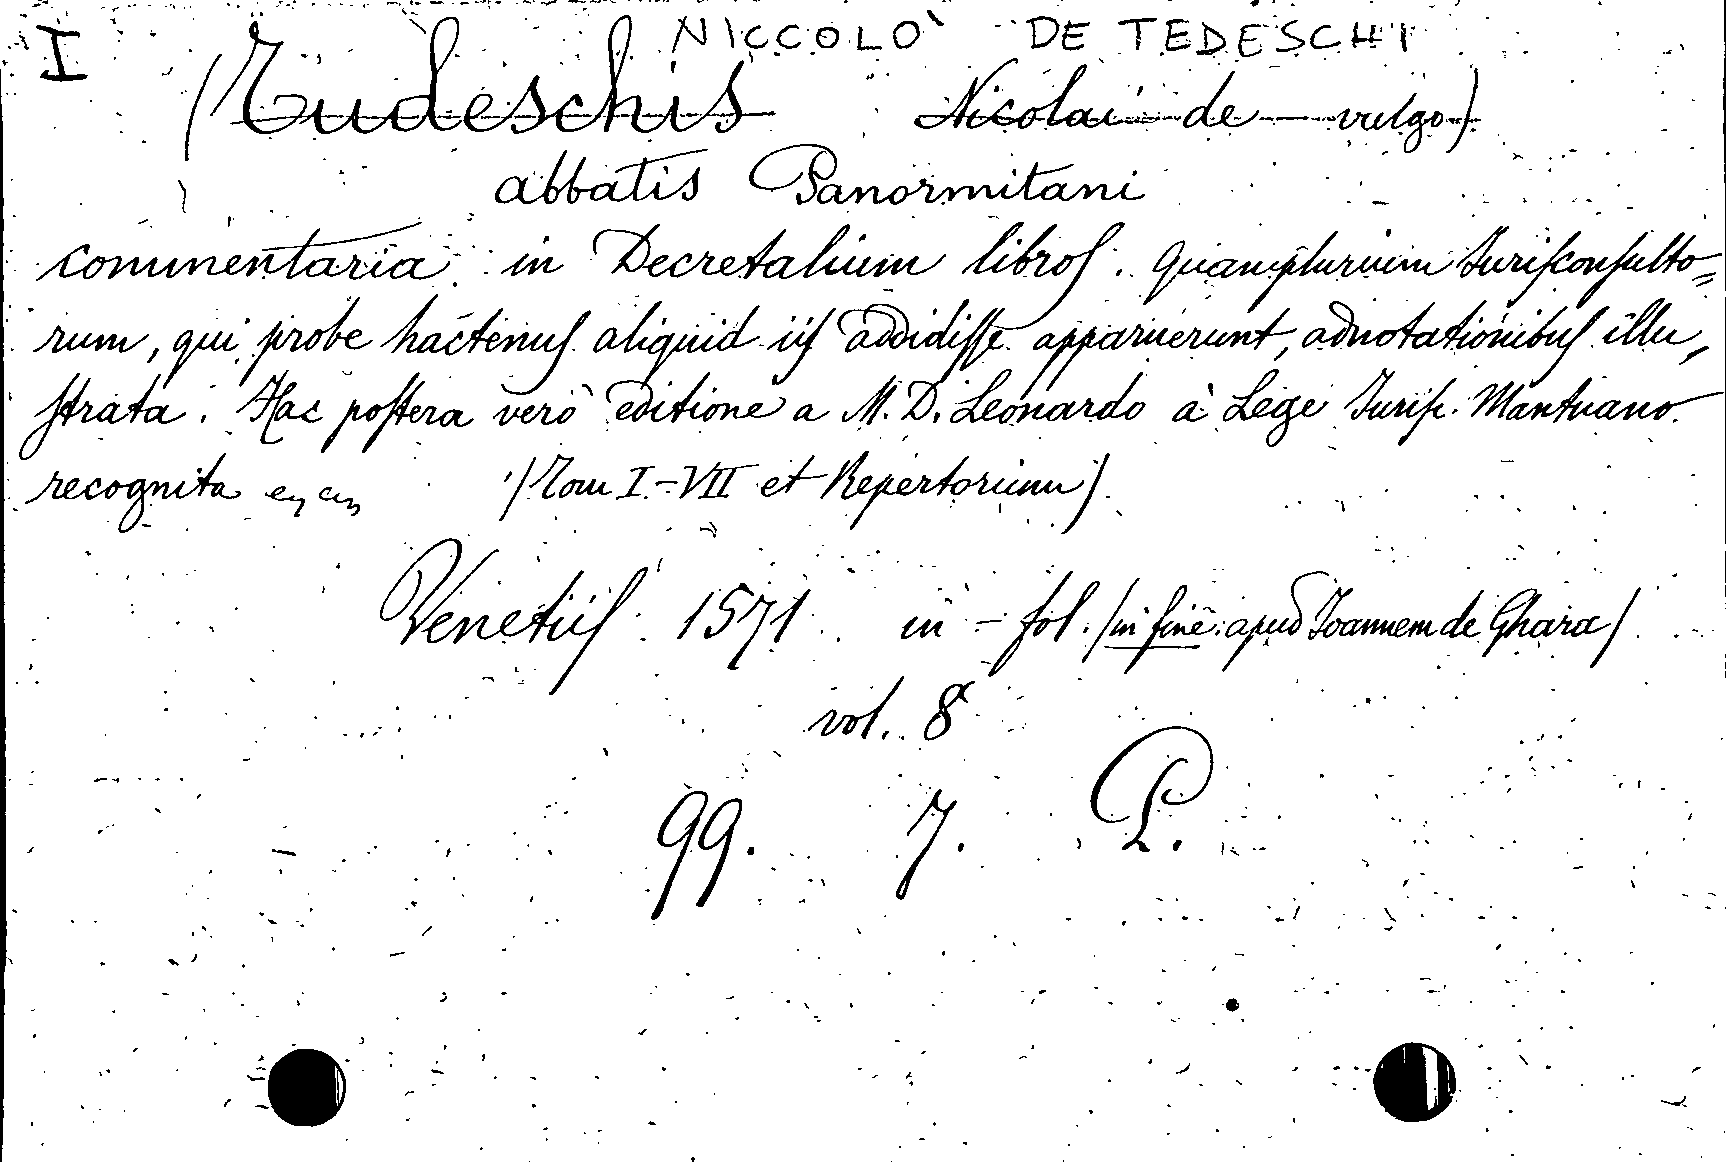 I NICCOLO' DE TEDESCHI
(Tudeschis Nicolai de vulgo)
abbatis Panormitani
commentaria in Decretalium libros. Quamplurium Jurisconsulto=
rum, qui probe hactenus aliquid iis addidisse apparuerunt, adnotationibus illu„
strata. Hac postera verò editione a M. D. Leonardo à Lege Jurisc. Mantuano
recognita (Tom I-VII et Repertorium)
Venetiis 1571 in-fol. (in fine: apud Joannem de Ghara)
vol. 8
99. 7. P.